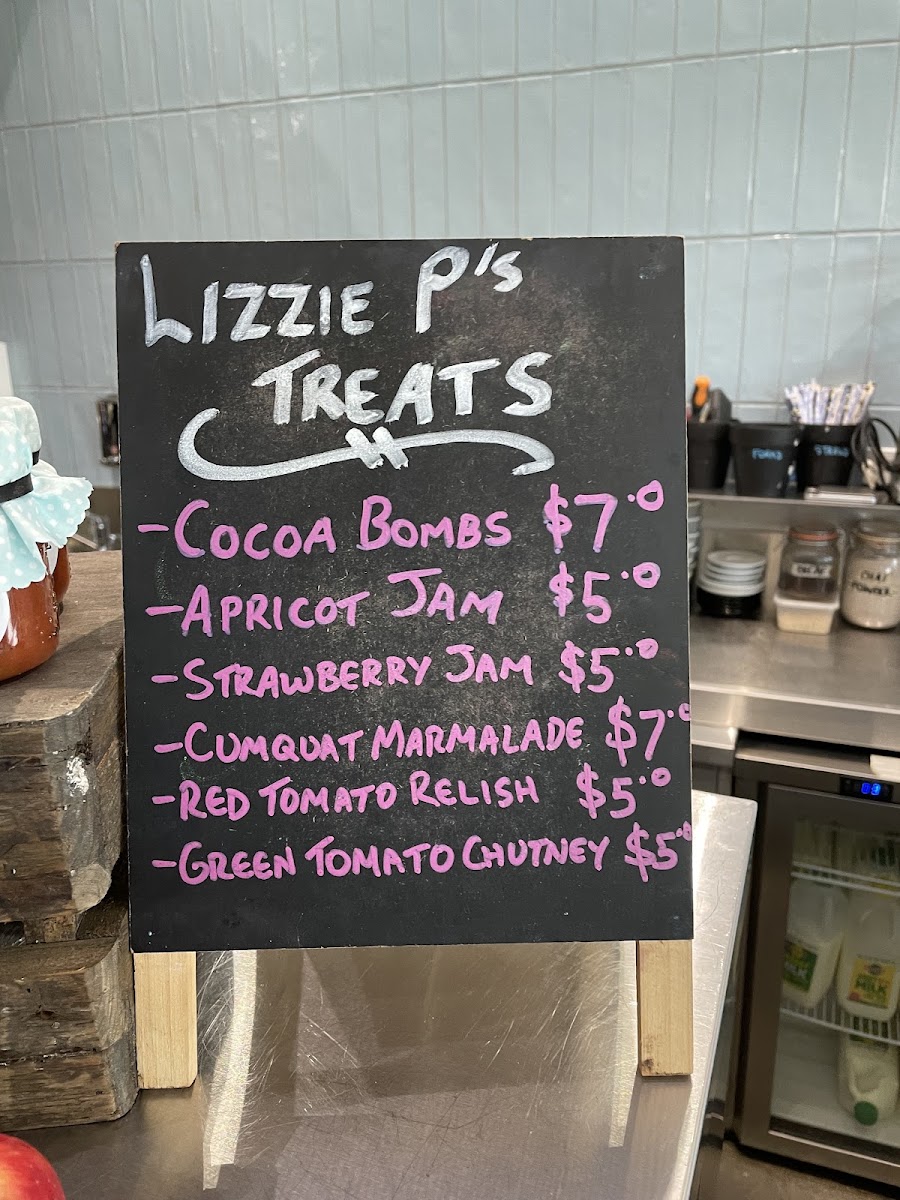 LIZZIE P's
TREATS
-COCOA BOMBS $7.0
-APRICOT JAM $5.0
-STRAWBERRY JAM $5.0
-CUMQUAT MARMALADE $7.0
-RED TOMATO RELISH $5.0
-GREEN TOMATO CHUTNEY $5.0
FORKS
STRAWS
DECAF
CHAI
POWDER
MILK